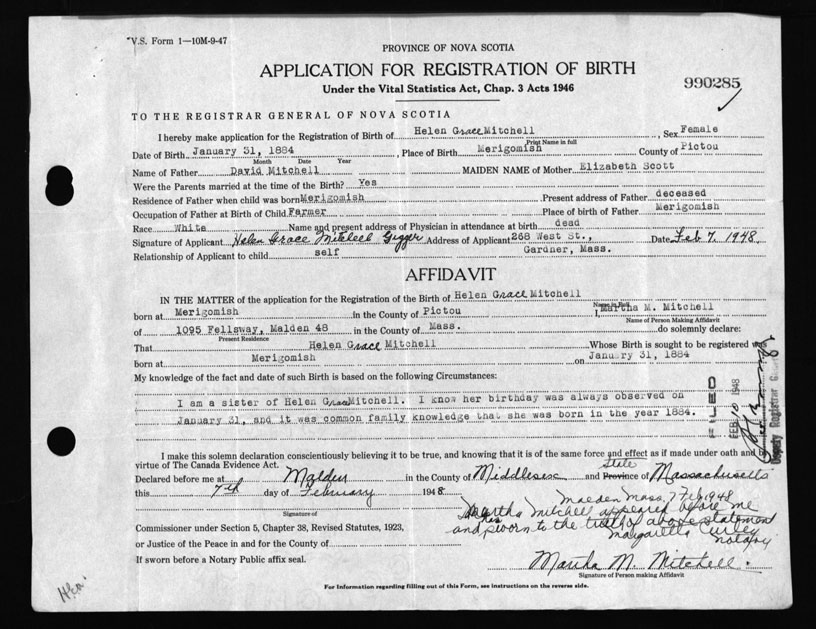 V.S. Form 1—10M-9-47
PROVINCE OF NOVA SCOTIA
APPLICATION FOR REGISTRATION OF BIRTH
Under the Vital Statistics Act, Chap. 3 Acts 1946
990285
TO THE REGISTRAR GENERAL OF NOVA SCOTIA
I hereby make application for the Registration of Birth of Helen Grace Mitchell, Sex Female
Print Name in full
Date of Birth January 31, 1884, Place of Birth Merigomish County of Pictou
Month Date Year
Name of Father David Mitchell MAIDEN NAME of Mother Elizabeth Scott
Were the Parents married at the time of the Birth? Yes
Residence of Father when child was born Merigomish Present address of Father deceased
Occupation of Father at Birth of Child Farmer Place of birth of Father Merigomish
Race White Name and present address of Physician in attendance at birth dead
Signature of Applicant Helen Grace Mitchell Address of Applicant 268 West St., Date Feb 7. 1948.
Relationship of Applicant to child self Gardner, Mass.
AFFIDAVIT
IN THE MATTER of the application for the Registration of the Birth of Helen Grace Mitchell
Name in full
born at Merigomish in the County of Pictou I, Martha M. Mitchell
Name of Person Making Affidavit
of 1095 Fellsway, Malden 48 in the County of Mass. do solemnly declare:
Present Residence
That Helen Grace Mitchell Whose Birth is sought to be registered was
born at Merigomish on January 31, 1884
My knowledge of the fact and date of such Birth is based on the following Circumstances:
I am a sister of Helen Grace Mitchell. I know her birthday was always observed on
January 31, and it was common family knowledge that she was born in the year 1884.
FILED
FEB 10 1948
Deputy Registrar
I make this solemn declaration conscientiously believing it to be true, and knowing that it is of the same force and effect as if made under oath and by
virtue of The Canada Evidence Act.
Declared before me at Malden in the County of Middlesex and Province State of Massachusetts
this 7th day of February 1948
Malden Mass, 7 Feb, 1948
Signature of
Martha Mitchell appeared before me
Commissioner under Section 5, Chapter 38, Revised Statutes, 1923,
and has sworn to the truth of above statement
or Justice of the Peace in and for the County of
Margaretta Curley
notary
If sworn before a Notary Public affix seal.
Martha M. Mitchell
Signature of Person making Affidavit
For Information regarding filling out of this Form, see instructions on the reverse side.